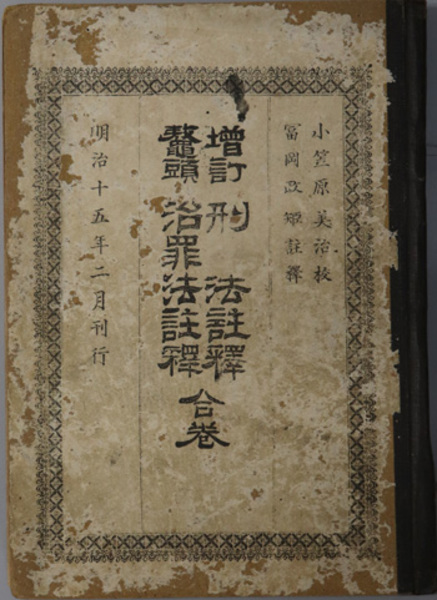 小笠原美治校
冨岡政矩註釋
增訂 刑法註釋
鼇頭 治罪法註釋
合卷
明治十五年二月刊行